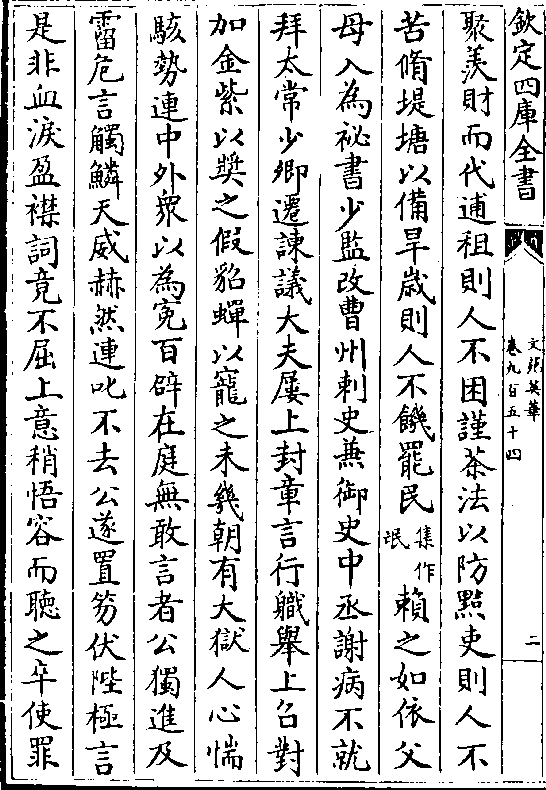 欽定四庫全書
文苑英華
卷九百五十四
二
聚羨財而代逋租則人不困謹茶法以防黠吏則人不
苦脩堤塘以備旱歳則人不饑罷民集作氓賴之如依父
母入為祕書少監改曹州刺史兼御史中丞謝病不就
拜太常少卿遷諫議大夫屢上封章言行職舉上召對
加金紫以奬之假貂蟬以寵之未幾朝有大獄人心惴
駭勢連中外衆以為寃百辟在庭無敢言者公獨進及
霤危言觸鱗天威赫然連叱不去公遂置笏伏陛極言
是非血淚盈襟詞竟不屈上意稍悟容而聽之卒使罪